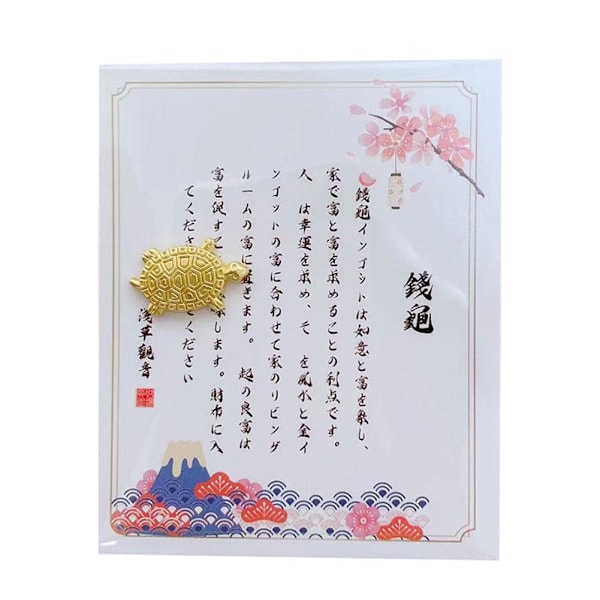 錢龜
錢龜インゴットは如意と富を象し、
家で富と富を求めることの利点です。
人 は幸運を求め、そ を風水と金イ
ンゴットの富に合わせて家のリビング
ルームの富に置きます。 起の良富は
富を促す します。財布に入
てくださ てください
淺草觀音